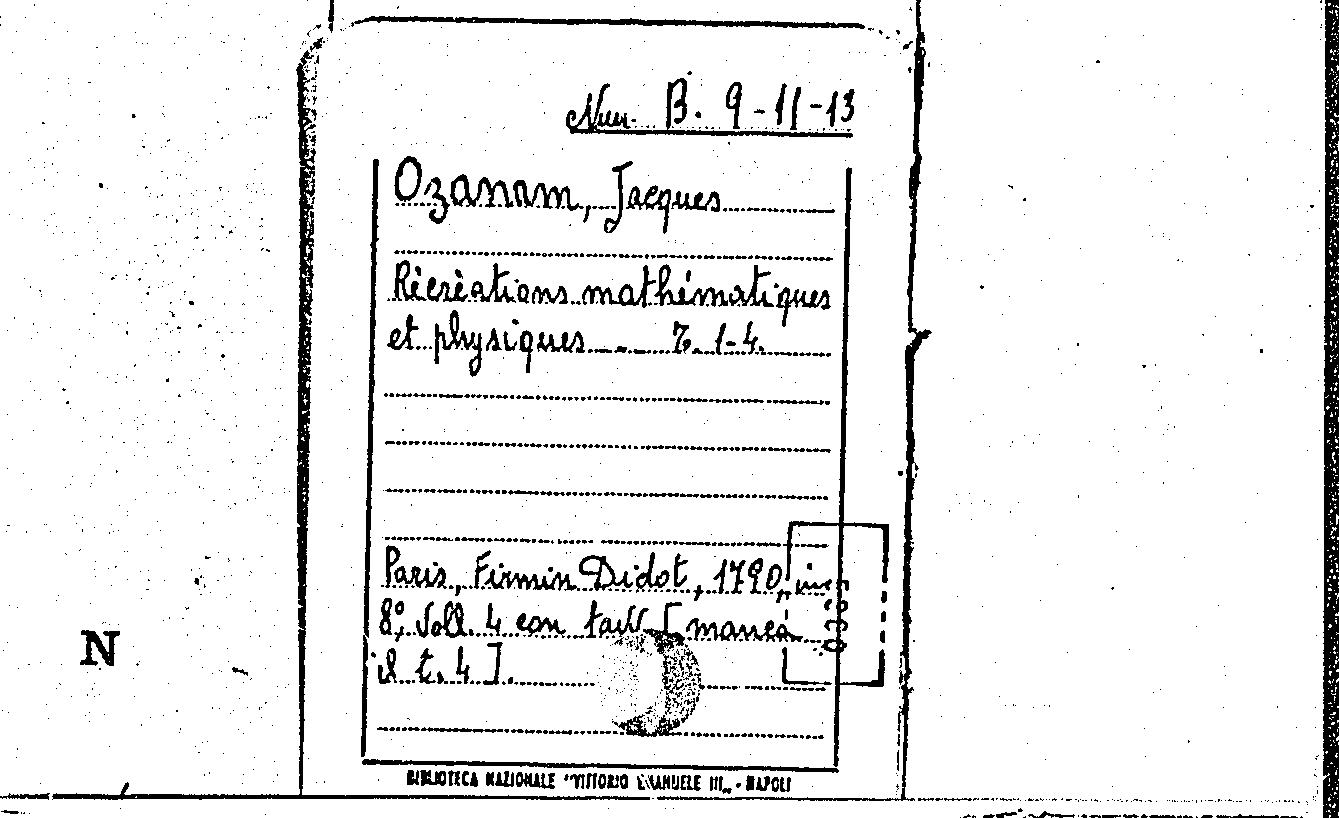 Nun. B. 9-11-13
Ozanam, Jacques
Récréations mathématiques
et physiques ... T. 1-4.
Paris, Firmin Didot, 1790, in
8°, Voll. 4 con tavv. [manca
il t. 4].
N
BIBLIOTECA NAZIONALE "VITTORIO EMANUELE III„ - NAPOLI